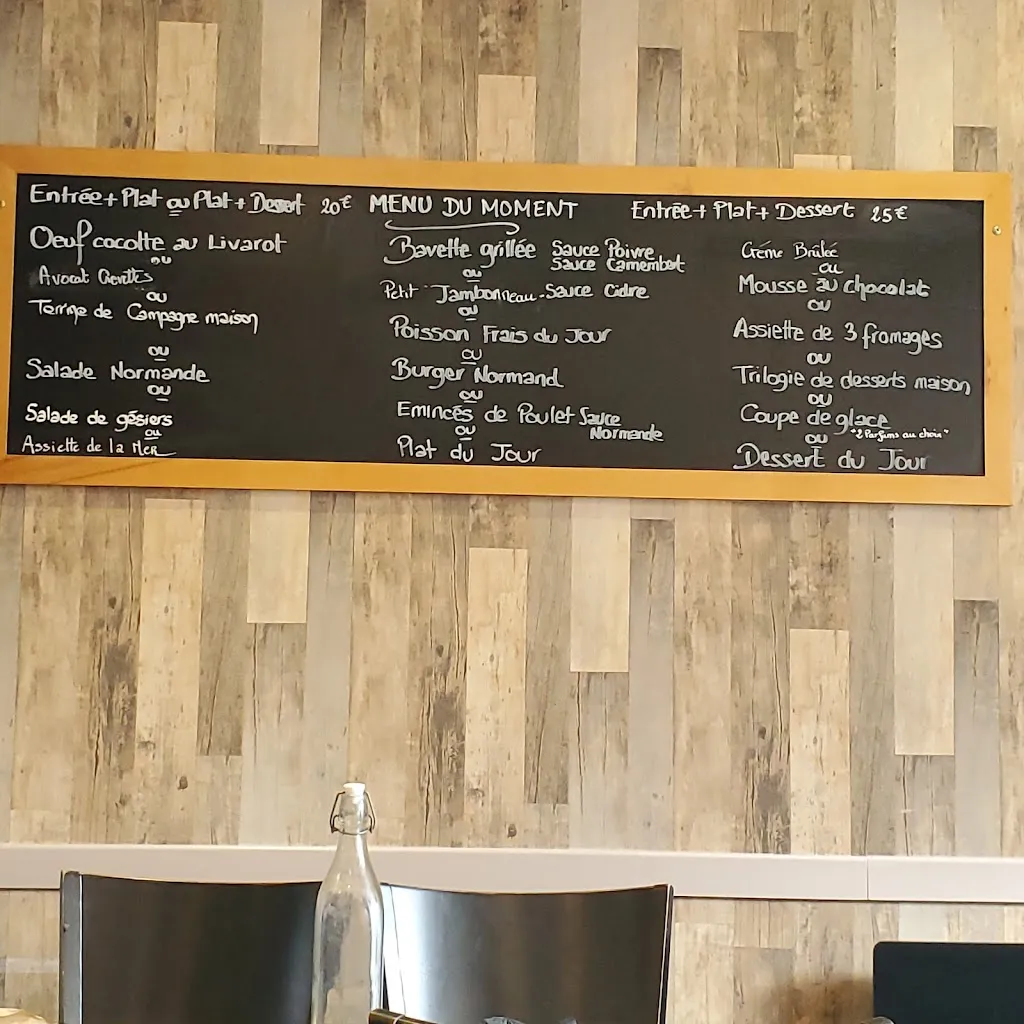 Entrée + Plat ou Plat + Dessert 20€
MENU DU MOMENT
Entrée + Plat + Dessert 25€
Oeuf cocotte au Livarot
ou
Avocat Crevettes
ou
Terrine de Campagne maison
ou
Salade Normande
ou
Salade de gésiers
ou
Assiette de la MER
Bavette grillée Sauce Poivre
Sauce Camembert
ou
Petit Jambonneau - Sauce Cidre
ou
Poisson Frais du Jour
ou
Burger Normand
ou
Emincés de Poulet Sauce
Normande
ou
Plat du Jour
Crème Brûlée
ou
Mousse au chocolat
ou
Assiette de 3 fromages
ou
Trilogie de desserts maison
ou
Coupe de glace
"2 Parfums au choix"
ou
Dessert du Jour